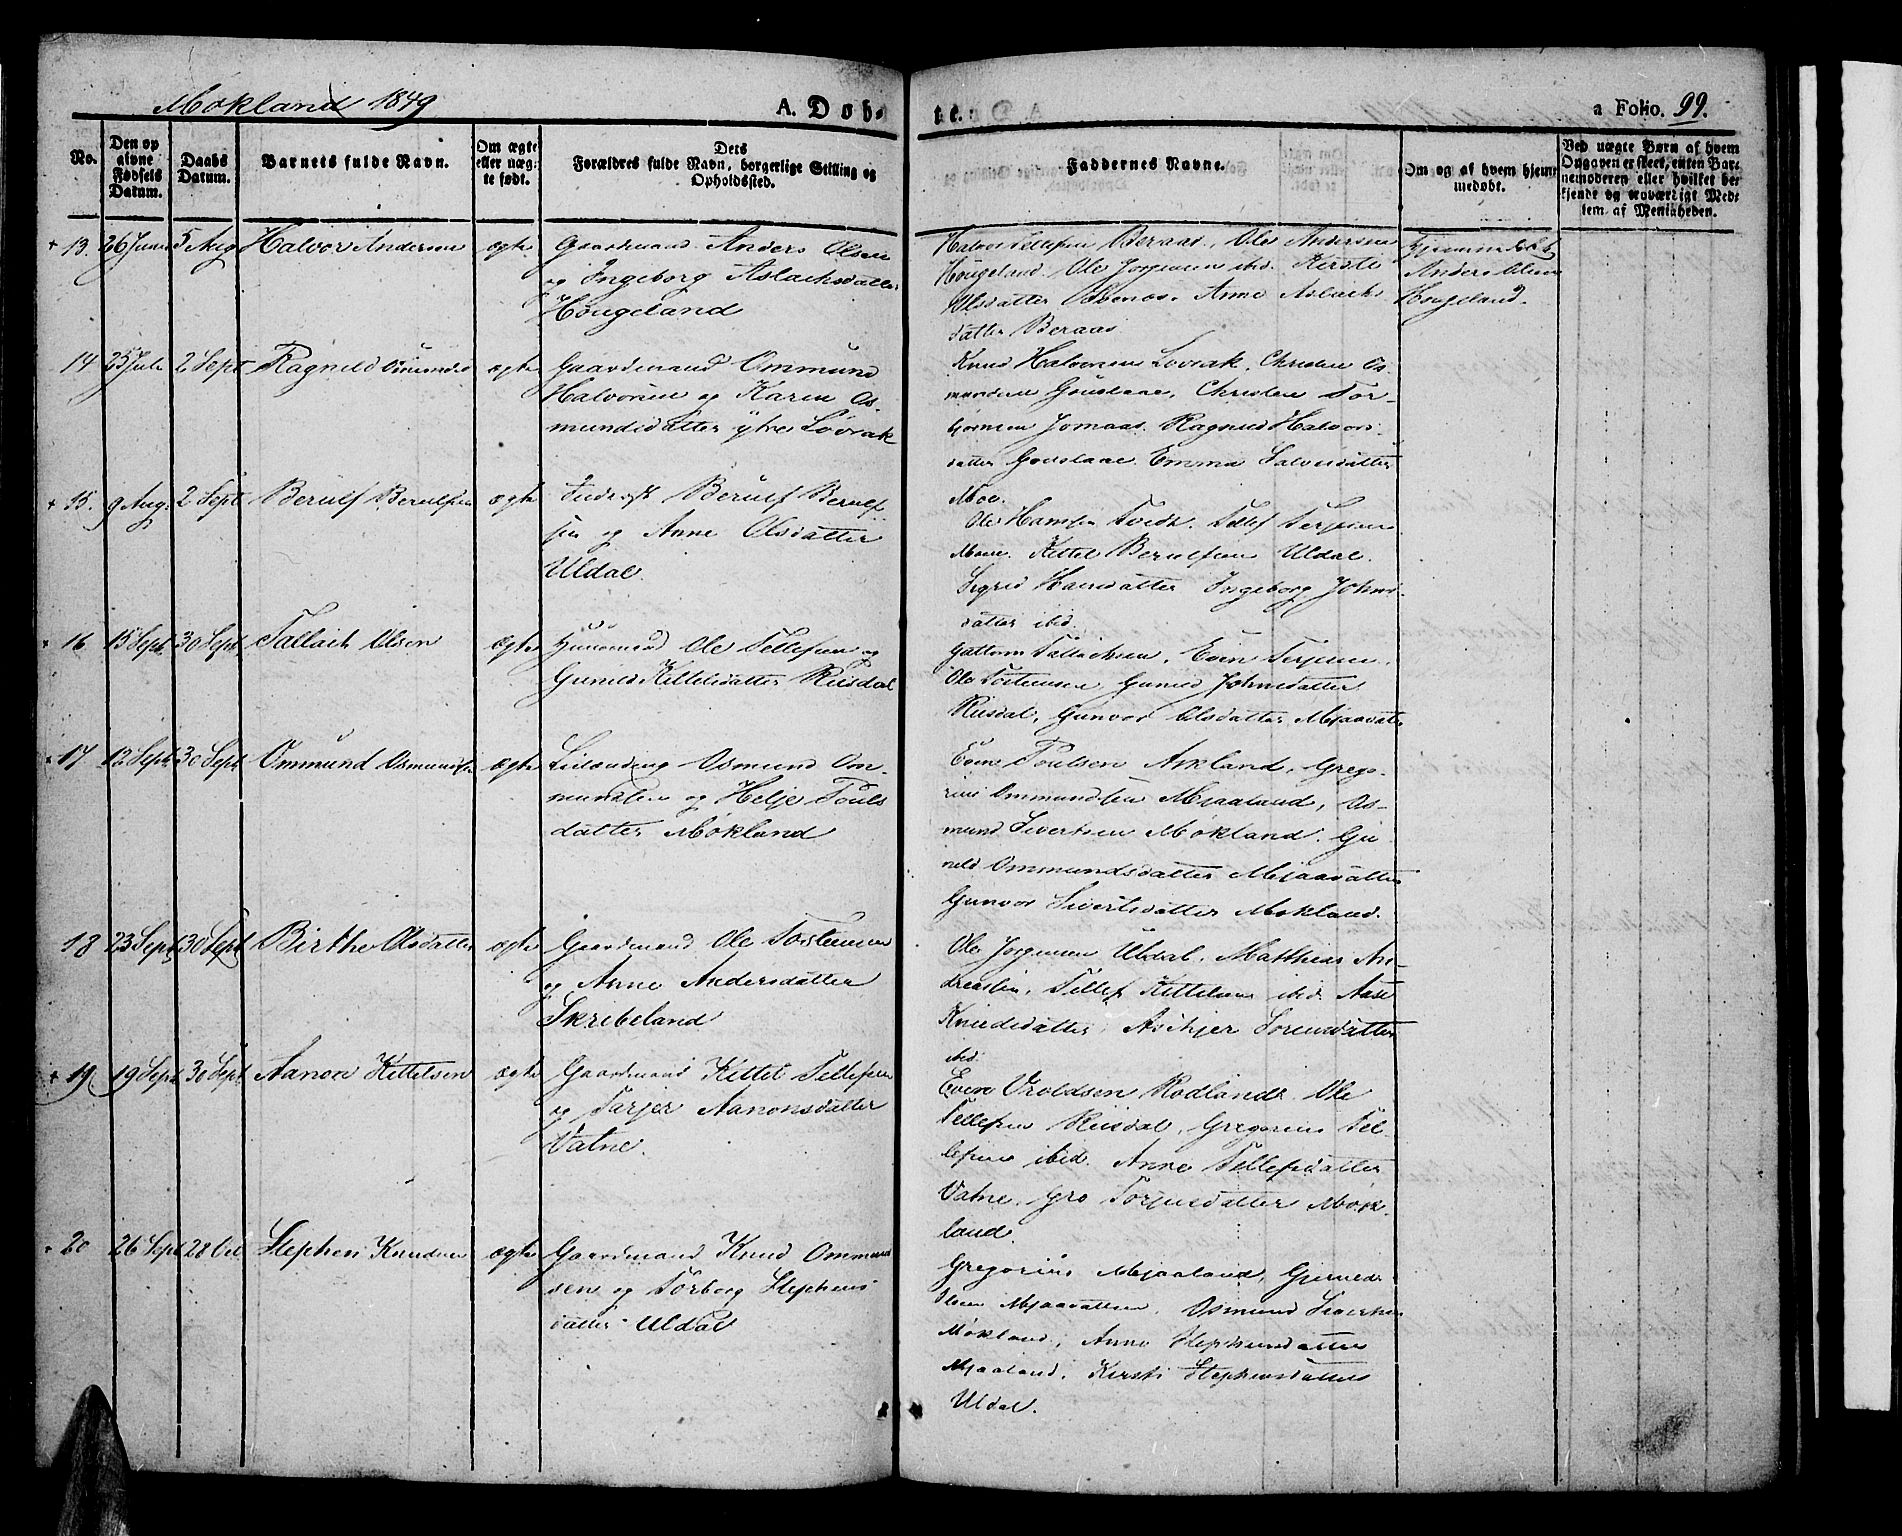 Mokland 1849
A. Døb-
te.
a Folio. 99.
No.
Den op
givne
Fødsels
Datum.
Daabs
Datum.
Barnets fulde Navn.
Om ægte
eller uæg-
te født.
Dets
Forældres fulde Navn, borgerlige Stilling og
Opholdssted.
Faddernes Navne.
Om og af hvem hjem-
medøbt.
Ved uægte Børn af hvem
Opgaven er skeet, enten Bar-
nemoderen eller hvilket be-
kjendt og troværdigt Med-
lem af Menigheden.
+ 13. 26 Juni 5 Aug Halvor Andersen ægte Gaardmand Anders Olsen
og Ingeborg Aslachsdatter
Hougeland
Halvor Tellefsen Beraas, Ole Andersen
Hougeland. Ole Jorgensen ibd. Kersti
Olsdatter Anne Aslachs
datter Beraas
Hjemmedøbt
Anders Olsen
Hougeland.
14 25 Juli 2 Sept Ragnild Ommundsd ægte Gaardmand Ommund
Halvorsen og Karen Os-
mundsdatter ytre Lovrak
Knud Halvorsen Lovrak. Christen Os-
mundsen Gouslaae, Christen Tor-
bjornsen Jomaas. Ragnild Halvors-
datter Gouslaae. Emma Salvesdatter
Moe.
+ 15. 9 Aug. 2 Sept Berulf Berulfsen ægte Berulf Berulf
sen og Anne Olsdatter
Uldal.
Ole Hansen Tvedt. Tellef Terjesen
Moe. Kittel Berulfsen Uldal.
Sigrid Hansdatter Ingeborg Johns-
datter ibid.
+ 16 15 Sept. 30 Sept. Tallach Olsen ægte Huusmand Ole Tellefsen og
Guneld Kittelsdatter Riisdal
Guttorm Tallachsen, Even Terjesen,
Ole Tostensen, Guneld Johnsdatter
Riisdal, Gunvor Olsdatter Mjaavatn
+ 17 12 Sept. 30 Sept Ommund Osmundsen ægte Leilænding Osmund Om-
mundsen og Helje Pouls
datter Mokland
Even Poulsen Askland, Grego-
rius Ommundsen Mjaaland, Os-
mund Sivertsen Mokland. Gu-
neld Ommundsdatter Mjaavatten
Gunvor Sivertsdatter Mokland.
18 23 Sept. 30 Sept Birthe Olsdatter ægte Gaardmand Ole Tostensen
og Anne Andersdatter
Skribeland
Ole Jorgensen Uldal. Matthias An-
dreasen, Tellef Kittelsen ibid Aase
Knudsdatter, Aschjer Sorensdatter
ibid.
+ 19 19 Sept 30 Sept. Aanon Kittelsen ægte Gaardmand Kittel Tellefsen
og Tarjer Aanonsdatter
Vatne.
Even Vroldsen Rodland. Ole
Tellefsen Riisdal, Gregorius Tel-
lefsen ibid. Anne Tellefsdatter
Vatne, Gro Torjusdatter Mok-
land.
+ 20 26 Sept 28 Oct Stephen Knudsen ægte Gaardmand Knud Ommund
sen og Torborg Stephens
datter Uldal
Gregorius Mjaaland, Gjermund
Olsen Mjaavatten. Osmund Sivertsen
Mokland, Anne Stephensdatter
Mjaaland, Kirsti Stephensdatter
Uldal.